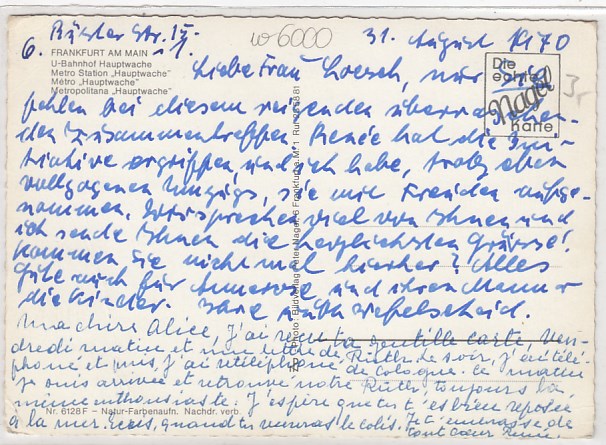 31. August 1970
6. FRANKFURT AM MAIN
U-Bahnhof Hauptwache
Metro Station „Hauptwache"
Métro „Hauptwache"
Metropolitana „Hauptwache"
w6000
Die
echte
Nagel
karte
3,-
Liebe Frau Loesch, nur Sie
fehlen bei diesem reizenden überraschen-
den Zusammentreffen. Renée hat die Ini-
tiative ergriffen, und ich habe, trotz eben
vollzogenen Umzugs, sie mit Freuden aufge-
nommen. Wir sprechen viel von Ihnen und
ich sende Ihnen die herzlichsten Grüsse!
Kommen Sie nicht mal hierher? Alles
Gute auch für Annerose und ihren Mann u
die Kinder. Ihre Ruth
Ma chère Alice, J'ai reçu ta gentille carte, Ven-
dredi matin et une lettre de Ruth le soir, j'ai télé-
phoné et puis, j'ai téléphoné de Cologne. Ce matin
je suis arrivée et retrouvé notre Ruth, toujours la
même enthousiaste. J'espère que tu t'es bien reposée
à la mer. Ecris, quand tu verras le colis. Je t'embrasse de
tout coeur Renée
Nr. 6128 F – Natur-Farbenaufn. Nachdr. verb.